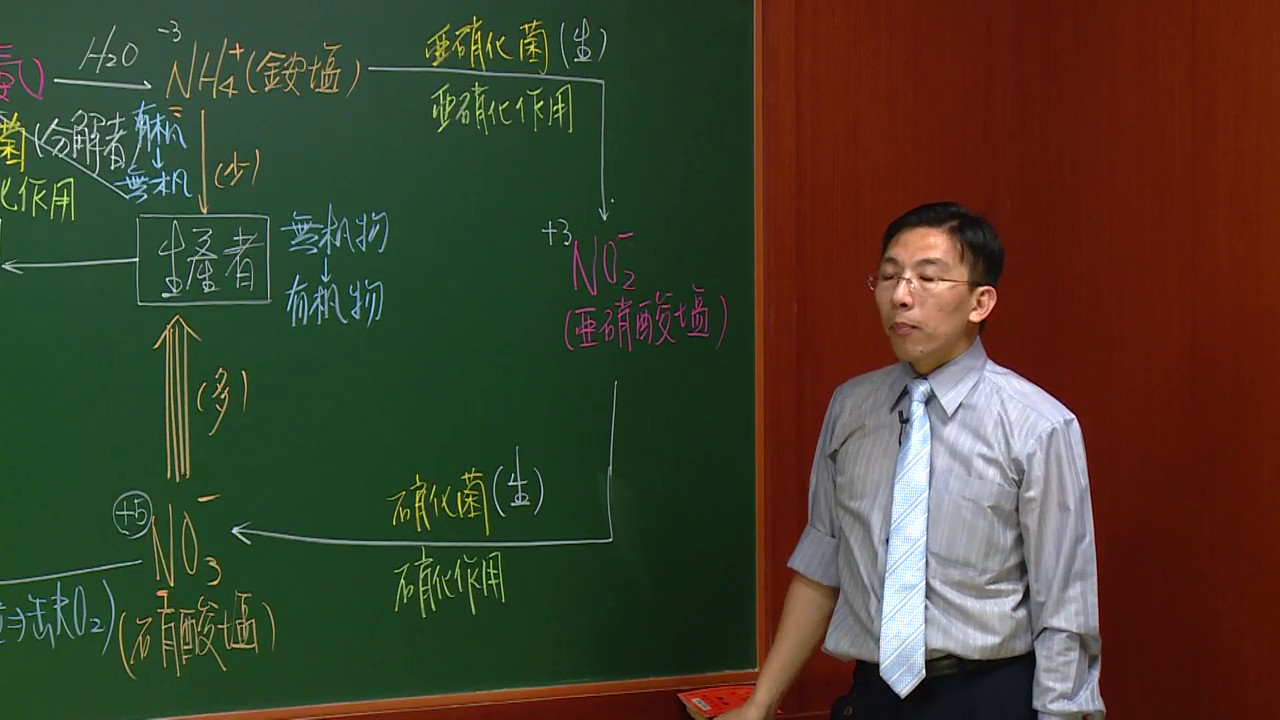 H2O
-3
NH4+(銨塩)
亜硝化菌(生)
亜硝化作用
氨)
菌(分解者
有机
↓
無机
化作用
(少)
生產者
無机物
↓
有机物
+3
NO2-
(亜硝酸塩)
(多)
硝化菌(生)
硝化作用
+5
NO3-
(硝酸塩)
⇒缺O2)